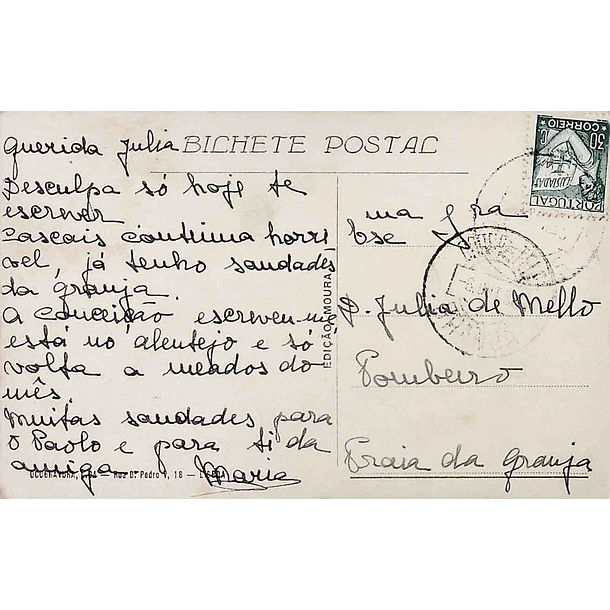 Querida Julia
BILHETE POSTAL
Desculpa só hoje te
escrever
Cascais continua horri
vel, já tenho saudades
da granja.
A Conceição escreveu-me
está no alentejo e só
volta a meados do
mês.
Muitas saudades para
o Paolo e para ti da
amiga Maria
OCOGRAVURA, LDA — Rua D. Pedro V, 18 — LISBOA
EDIÇÃO MOURA
30 C.
CORREIO
LUSIADAS
PORTUGAL
D. Julia de Mello
Pombeiro
Praia da Granja